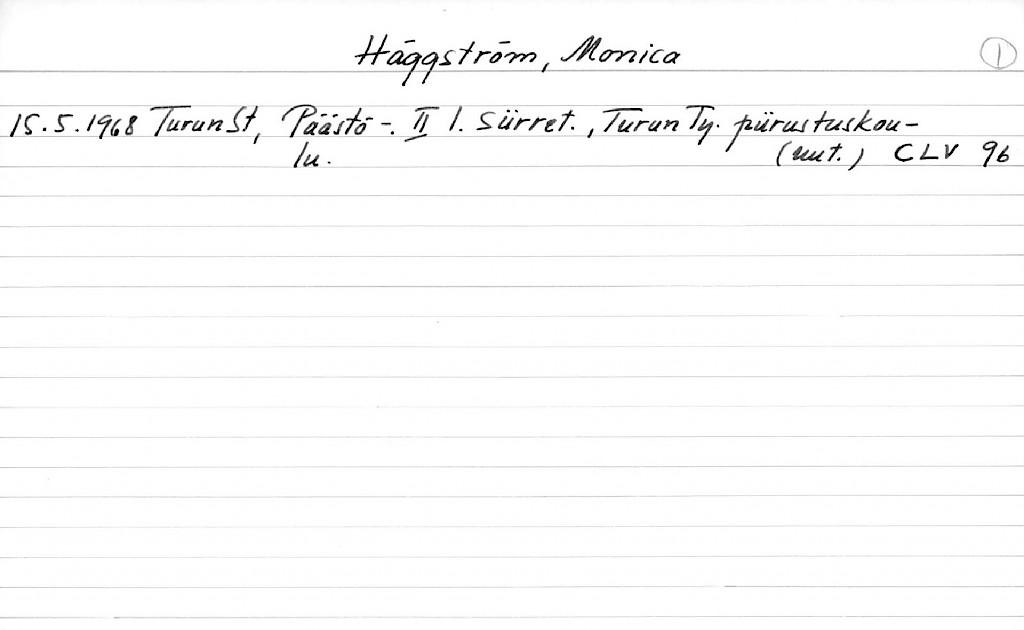 Häggström, Monica 1
15.5.1968 Turun St, Päästö-. II l. Siirret., Turun Ty. piirustuskou-
lu. (uut.) CLV 96